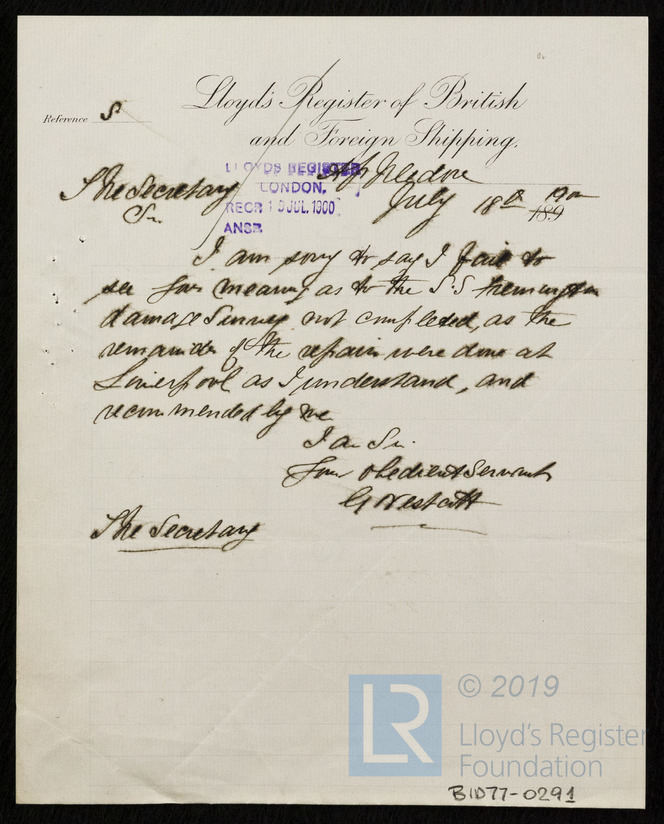 Lloyd's Register of British
and Foreign Shipping.
Reference S
LLOYDS REGISTER
LONDON.
RECR 19 JUL. 1900
ANSR.
Appledore
July 18th 1900
189
The Secretary
Sir
I am sorry to say I fail to
see your meaning as to the S.S
damage Survey not completed, as the
remainder of the repairs were done at
Liverpool as I understand, and
recommended by me
I am Sir
Your obedient Servant
G Westcott
The Secretary
LR
© 2019
Lloyd's Register
Foundation
BID77-0291